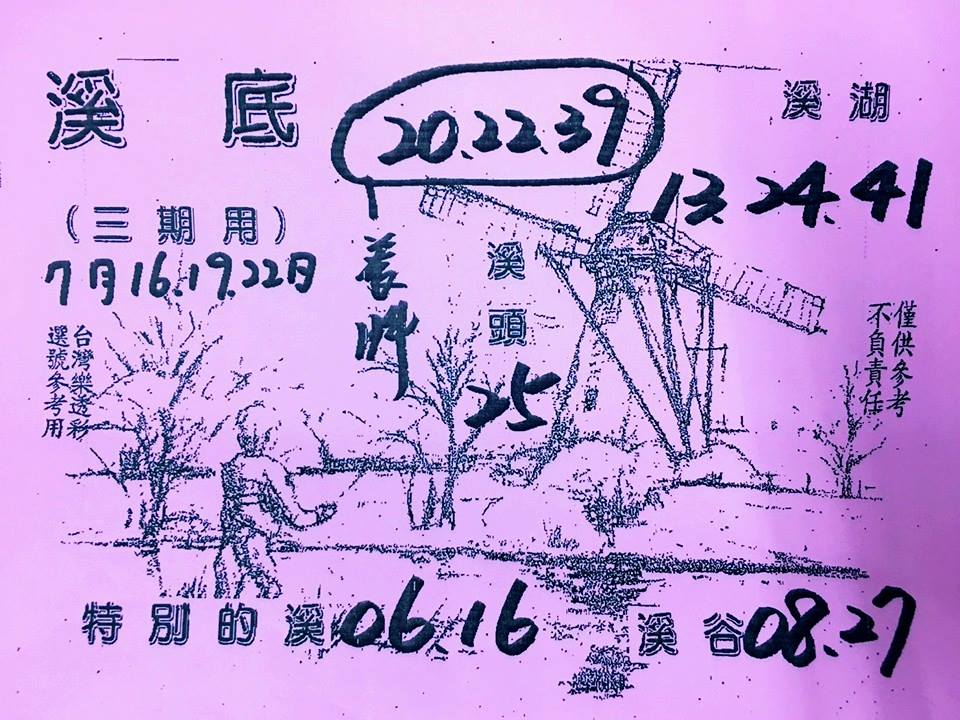 溪底
20.22.39
溪湖
13.24.41
(三期用)
7月16.19.22日
溪頭
25
台灣樂透彩
選號參考用
僅供參考
不負責任
特別的溪06.16
溪谷08.27